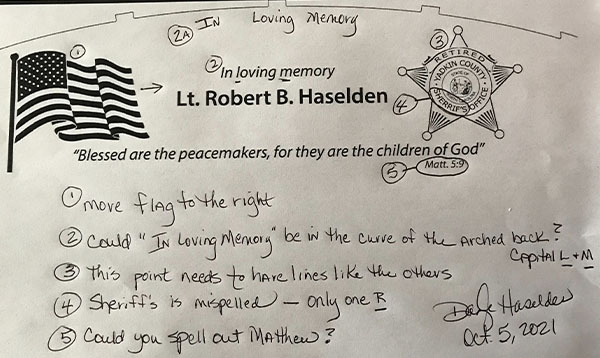 2A In Loving Memory
1
2 In loving memory
3 RETIRED
YADKIN COUNTY
STATE OF
4 SHERRIF'S OFFICE
Lt. Robert B. Haselden
"Blessed are the peacemakers, for they are the children of God"
5 Matt. 5:9
1 move flag to the right
2 Could "In Loving Memory" be in the curve of the arched back?
Capital L + M
3 This point needs to have lines like the others
4 Sheriff's is mispelled — only one R
5 Could you spell out Matthew?
Dale Haselden
Oct. 5, 2021